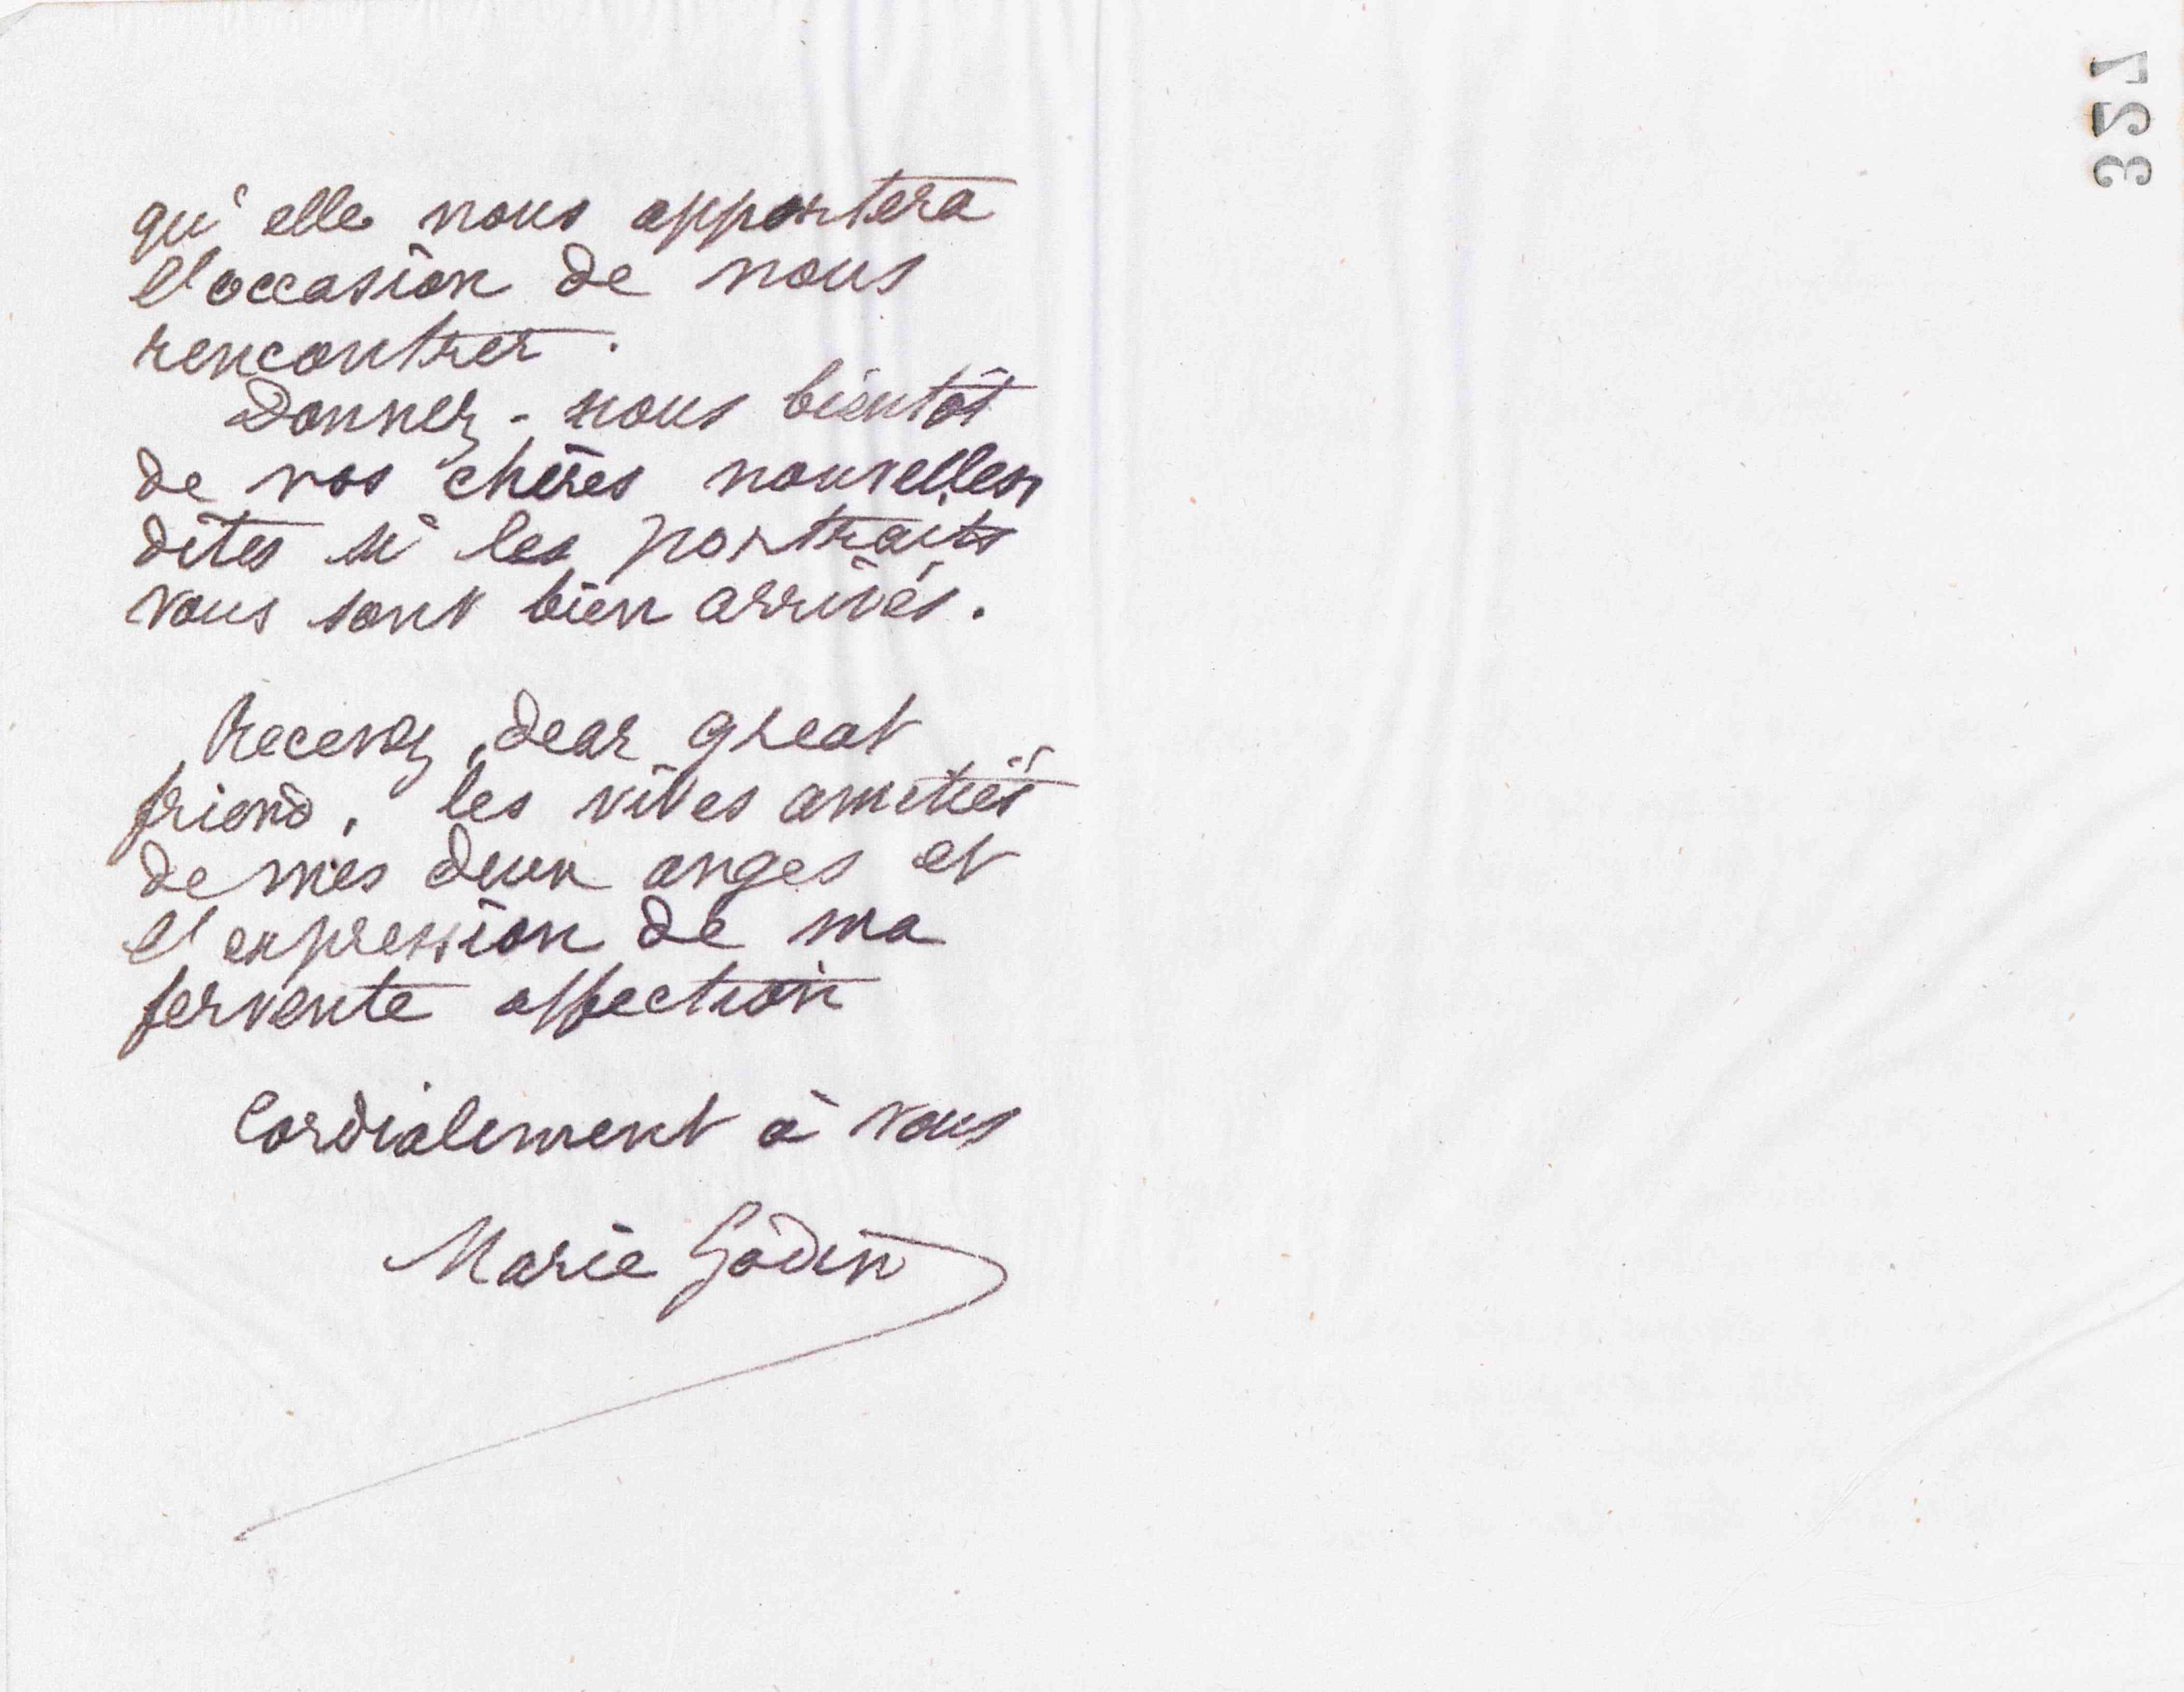 qu'elle nous apportera
l'occasion de nous
rencontrer.
Donnez-nous bientôt
de vos chères nouvelles,
dites si les portraits
vous sont bien arrivés.
Recevez, dear great
friend, les vives amitiés
de mes deux anges et
l'expression de ma
fervente affection
Cordialement à vous
Marie Godin
3521